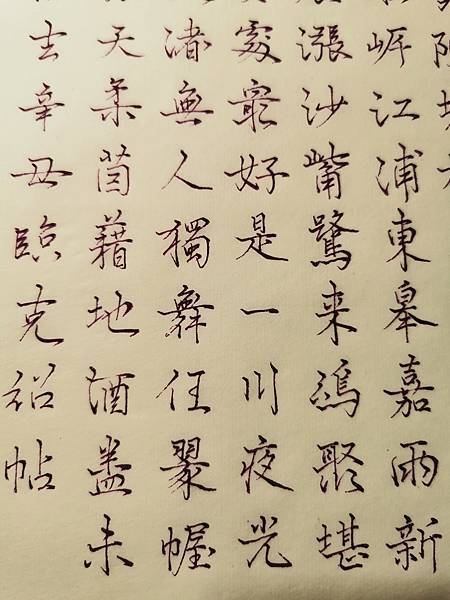 岸江浦東皋嘉雨新
漲沙觜鷺来鴻聚堪
處最好是一川夜光
渚無人獨舞任翠幄
天柔茵藉地酒盡未
去辛丑臨克帖